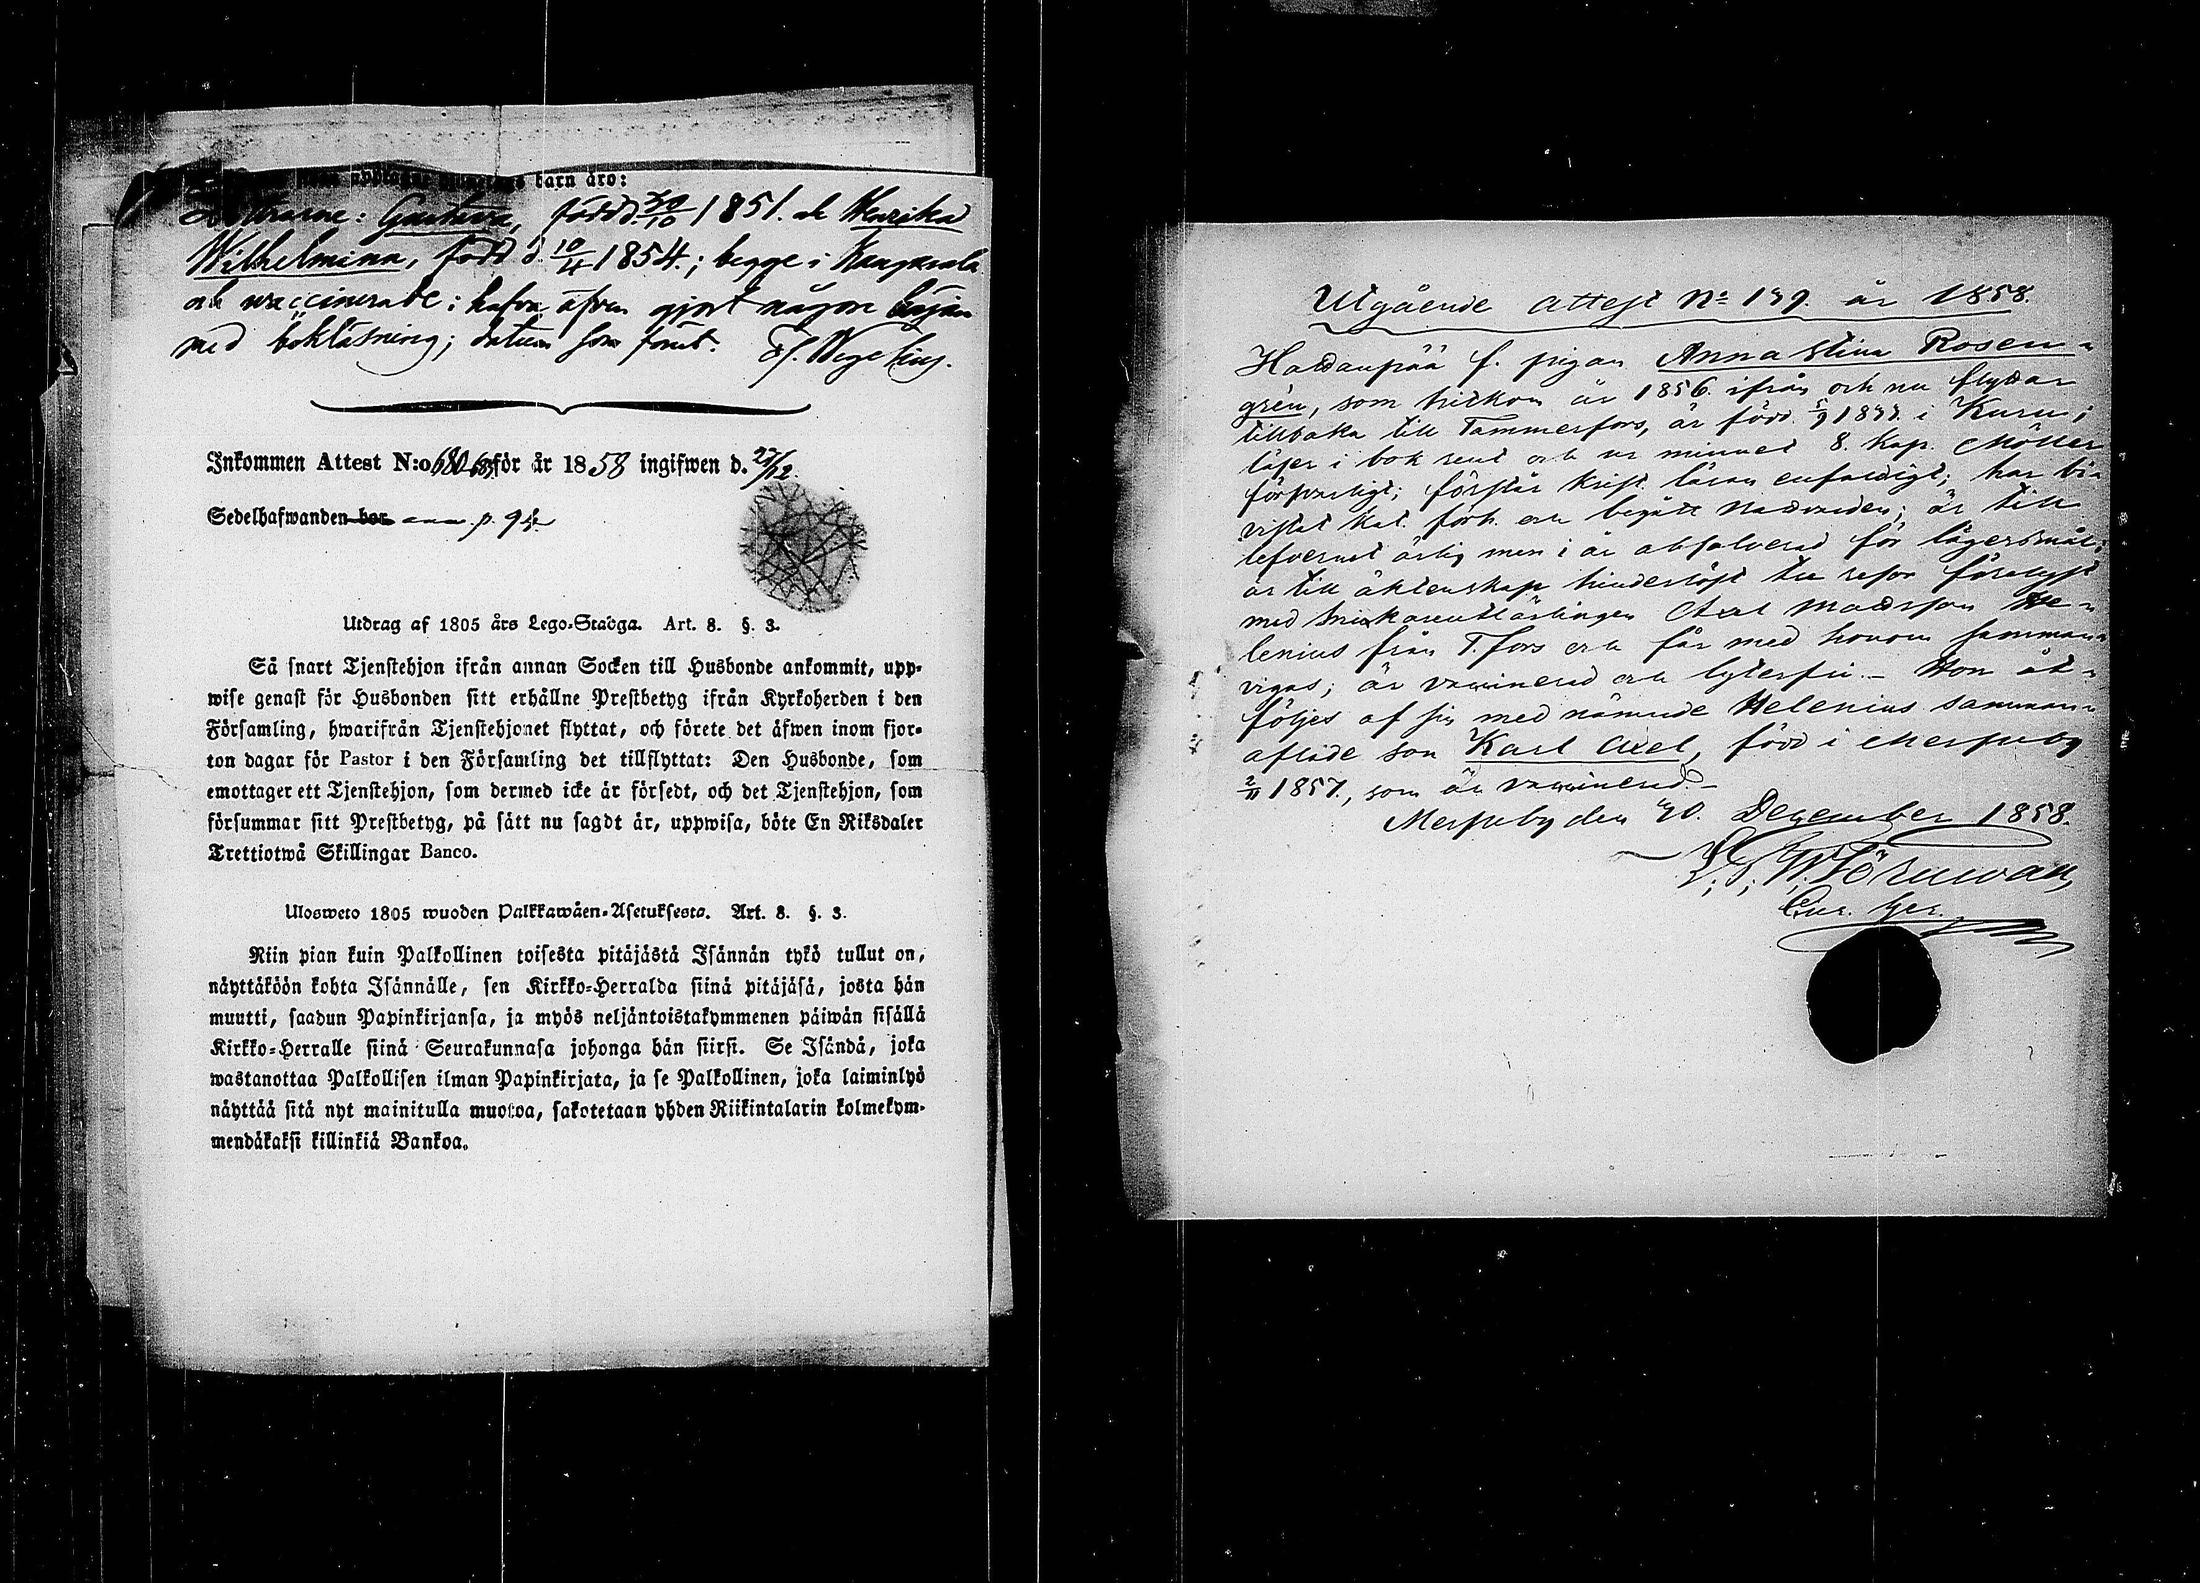 barn äro:
Döttrarne: Gustava, född d. 30/10 1851. och Henrika
Wilhelmina, född d. 10/4 1854.; begge i Kangasala
och vaccinerade: hafva äfven gjort någon början
med bokläsning; datum som förut. Wegelius.
Inkommen Attest N:o 680-683 för år 1858 ingifwen d. 27/12.
Sedelhafwanden bor p. 94
Utdrag af 1805 års Lego-Stadga. Art. 8. §. 3.
Så snart Tjenstehjon ifrån annan Socken till Husbonde ankommit, upp-
wise genast för Husbonden sitt erhållne Prestbetyg ifrån Kyrkoherden i den
Församling, hwarifrån Tjenstehjonet flyttat, och förete det äfwen inom fjor-
ton dagar för Pastor i den Församling det tillflyttat: Den Husbonde, som
emottager ett Tjenstehjon, som dermed icke är försedt, och det Tjenstehjon, som
försummar sitt Prestbetyg, på sätt nu sagdt är, uppwisa, böte En Riksdaler
Trettiotwå Skillingar Banco.
Ulosweto 1805 wuoden Palkkawäen-Asetuksesta. Art. 8. §. 3.
Niin pian kuin Palkollinen toisesta pitäjästä Isännän tykö tullut on,
näyttäköön kohta Isännälle, sen Kirkko-Herralda siinä pitäjäsä, josta hän
muutti, saadun Papinkirjansa, ja myös neljäntoistakymmenen päiwän sisällä
Kirkko-Herralle siinä Seurakunnasa johonga hän siirsi. Se Isändä, joka
wastanottaa Palkollisen ilman Papinkirjata, ja se Palkollinen, joka laiminlyö
näyttää sitä nyt mainitulla muotoa, sakotetaan yhden Riikintalarin kolmekym-
mendäkaksi killinkiä Bankoa.
Utgående attest No 139. år 1858.
Haldanpää f. pigan Anna Stina Rosen-
grén, som hitkom år 1856. ifrån och nu flyttar
tillbaka till Tammerfors, är född 5/9 1833. i Kuru;
läser i bok rent och ur minnet 8. Kap. Möller
försvarligt; förstår Krist. läran enfaldigt; har bi-
vistat Kat. förh. och begått Nattvarden; är till
lefvernet ärlig men i år absolverad för lägersmål;
är till äktenskap hinderslöst tre resor förelyst
med snickarenilärlingen Axel Mattsson He-
lenius från T.fors och får med honom samman-
vigas; är vaccinerad och lyterfri. – Hon åt-
följes af sin med nämnde Helenius samman-
aflade son Karl Axel, född i Messuby
2/11 1857., som är vaccinerad. –
Messuby den 20. December 1858.
Törnwall,